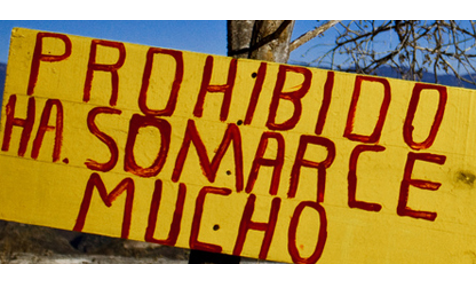 PROHIBIDO
HA. SOMARCE
MUCHO